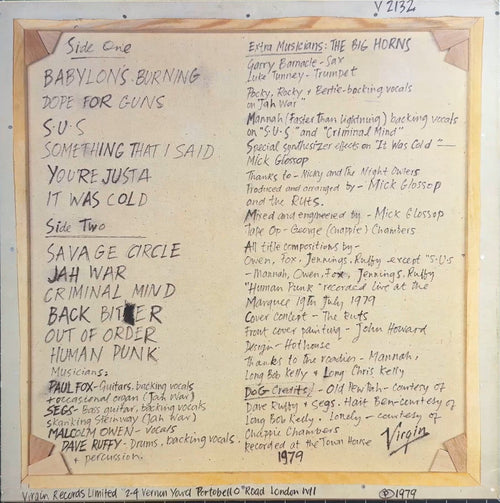 V 2132
Side One
BABYLON'S BURNING
DOPE FOR GUNS
S·U·S
SOMETHING THAT I SAID
YOU'RE JUST A
IT WAS COLD
Side Two
SAVAGE CIRCLE
JAH WAR
CRIMINAL MIND
BACK BITER
OUT OF ORDER
HUMAN PUNK
Musicians:
PAUL FOX - Guitars, backing vocals
+ occasional organ (Jah War)
SEGS - Bass guitar, backing vocals
skanking Steinway (Jah War)
MALCOLM OWEN - vocals
DAVE RUFFY - Drums, backing vocals
+ percussion.
Extra Musicians: THE BIG HORNS
Gary Barnacle - Sax
Luke Tunney - Trumpet
Pocky, Rocky + Bertie - backing vocals
on "Jah War"
Mannah (Faster Than Lightning) backing vocals
on "S·U·S" and "Criminal Mind"
Special synthesizer effects on "It Was Cold" -
Mick Glossop
Thanks to - Nicky and The Night Owers
Produced and arranged by - Mick Glossop
and the Ruts.
Mixed and engineered by - Mick Glossop
Tape Op - George (Chappie) Chambers
All title compositions by -
Owen, Fox, Jennings, Ruffy except "S·U·S
- Mannah, Owen, Fox, Jennings, Ruffy
"Human Punk" recorded live at the
Marquee 19th July 1979
Cover concept - The Ruts
Front cover painting - John Howard
Design - Hothouse
Thanks to the roadies - Mannah,
Long Bob Kelly & Long Chris Kelly
DOG Credits: - Old - courtesy of
Dave Ruffy & Segs. Ben - courtesy of
Long Bob Kelly. Lonely - courtesy of
Chappie Chambers
Recorded at the Town House
1979
Virgin
Virgin Records Limited 2-4 Vernon Yard Portobello Road London W11
Ⓟ©1979